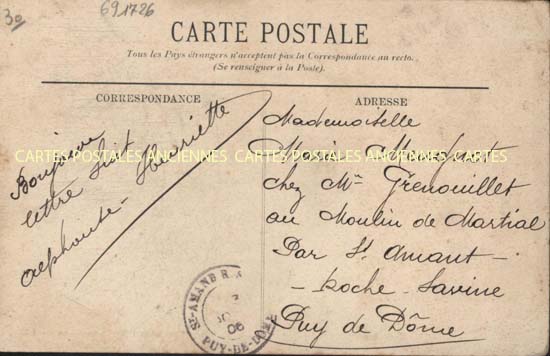 30
691726
CARTE POSTALE
Tous les Pays étrangers n'acceptent pas la Correspondance au recto.
(Se renseigner à la Poste).
CORRESPONDANCE
ADRESSE
lettre suit
Alphonse - Henriette
Mademoiselle
Maria
chez Mr Grenouillet
au Moulin de Martial
Par St Amant -
- Roche - Savine
Puy de Dôme
CARTES POSTALES ANCIENNES CARTES POSTALES ANCIENNES CARTES POSTALES
ST-AMAND R.
06
PUY-DE-DOME